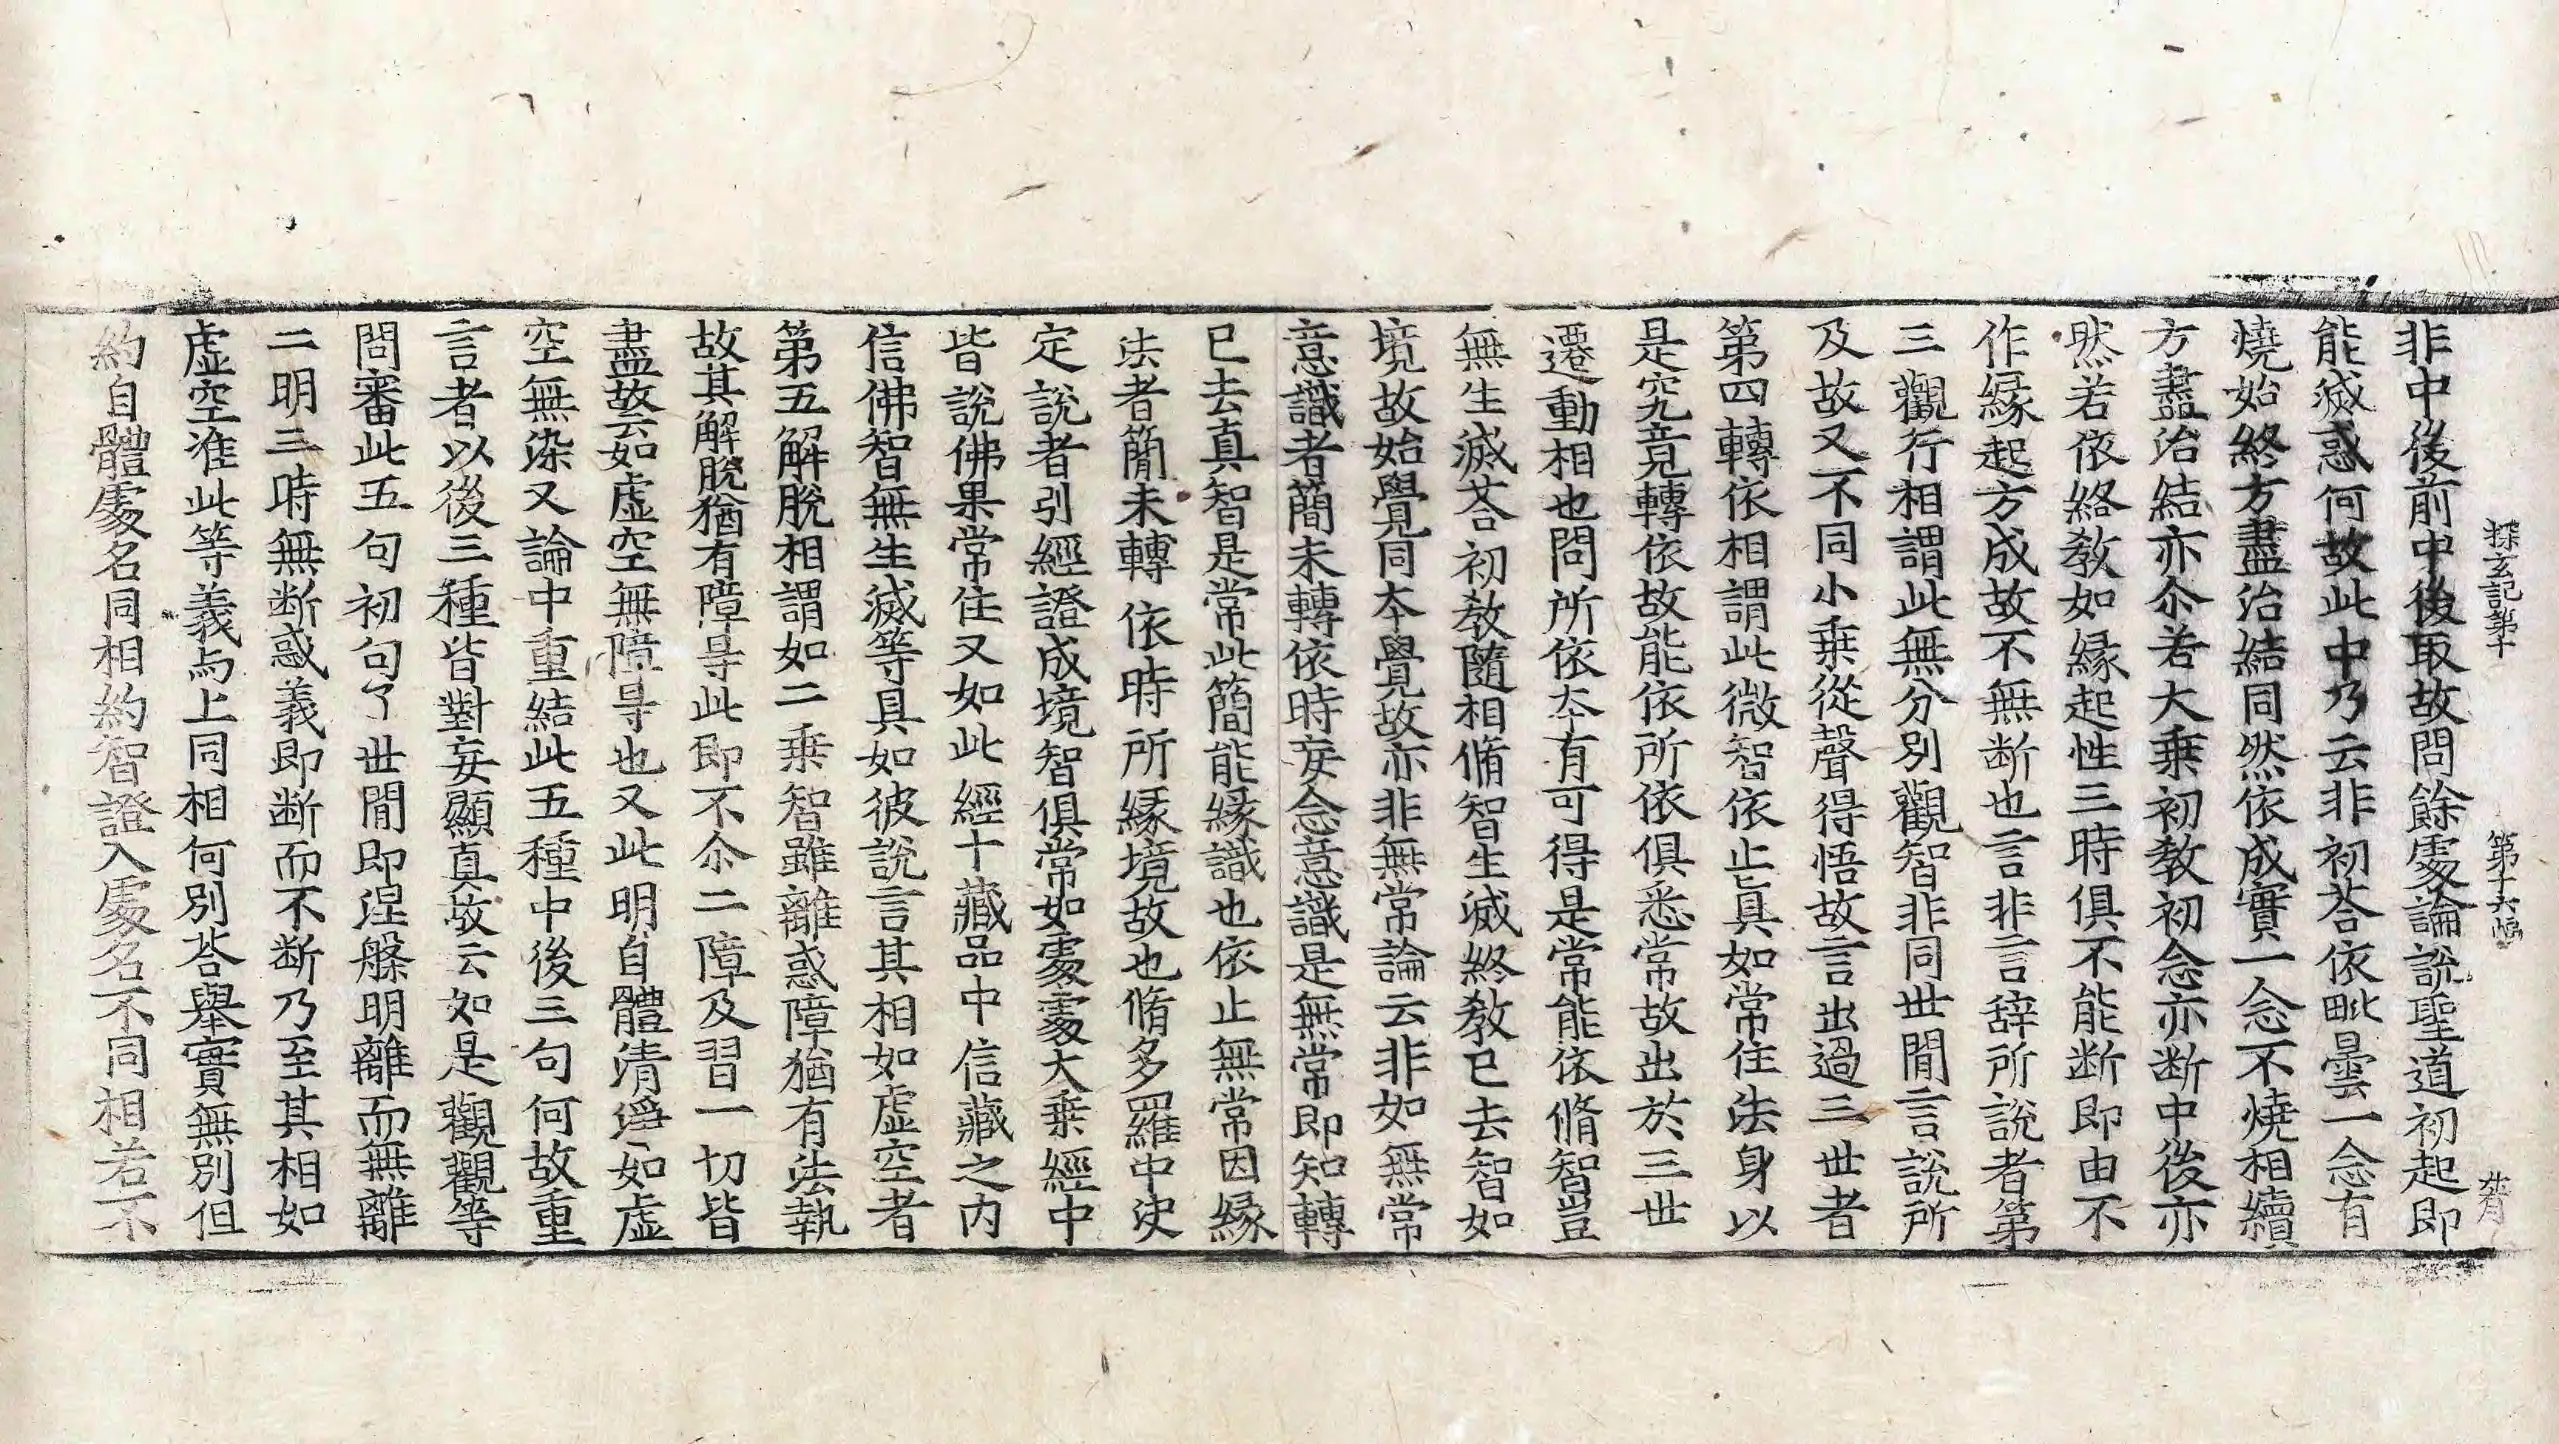 探玄記第十 第十六幅
非中後前中後取故問餘處論說聖道初起即
能滅惑何故此中乃云非初荅依毗曇一念有
燒始終方盡治結同然依成實一念不燒相續
方盡治結亦尒若大乗初教初念亦断中後亦
然若依終教如縁起性三時俱不能断即由不
作縁起方成故不無断也言非言辞所說者第
三觀行相謂此無分別觀智非同世間言說所
及故又不同小乗從聲得悟故言出過三世者
第四轉依相謂此微智依止真如常住法身以
是究竟轉依故能依所依俱悉常故出於三世
遷動相也問所依夲有可得是常能依脩智豈
無生滅荅初教隨相脩智生滅終教已去智如
境故始覺同夲覺故亦非無常論云非如無常
意識者簡未轉依時妄念意識是無常即知轉
已去真智是常此簡能縁識也依止無常因縁
法者簡未轉依時所縁境故也脩多羅中决
定說者引經證成境智俱常如處處大乗經中
皆說佛果常住又如此經十藏品中信藏之内
信佛智無生滅等具如彼說言其相如虚空者
第五解脫相謂如二乗智雖離惑障猶有法執
故其解脫猶有障㝵此即不尒二障及習一切皆
盡故云如虚空無障㝵也又此明自體清淨如虚
空無染又論中重結此五種中後三句何故重
言者以後三種皆對妄顯真故云如是觀觀等
問審此五句初句了世間即涅槃明離而無離
二明三時無断惑義即断而不断乃至其相如
虚空准此等義与上同相何別荅舉實無別但
約自體處名同相約智證入處名不同相若不